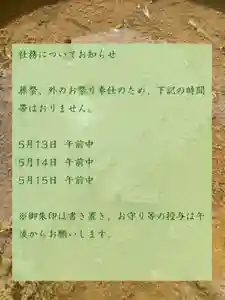 社務についてお知らせ
葬祭、外のお祭り奉仕のため、下記の時間
帯はおりません。
5月13日 午前中
5月14日 午前中
5月15日 午前中
※御朱印は書き置き、お守り等の授与は午
後からお願いします。